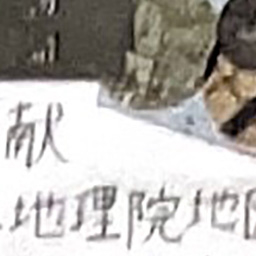 献
地理院地